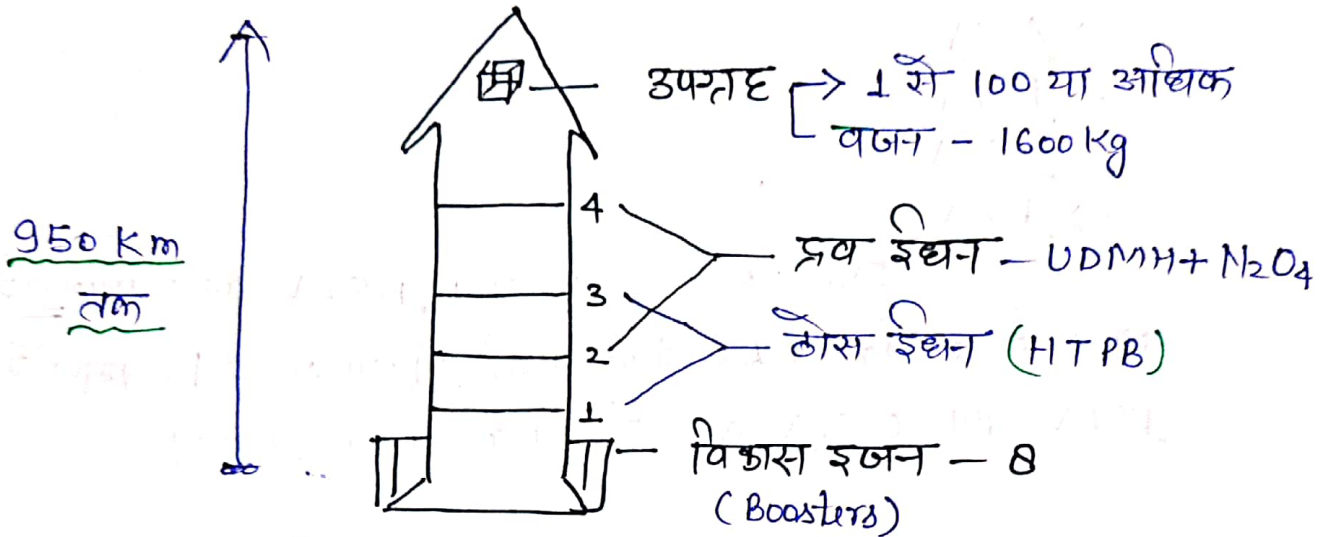 उपग्रह → 1 से 100 या अधिक
वजन - 1600 Kg
950 Km
तक
4
3
2
1
द्रव ईधन - UDMH + N2O4
ठोस ईधन (HTPB)
विकास इजन - 8
(Boosters)